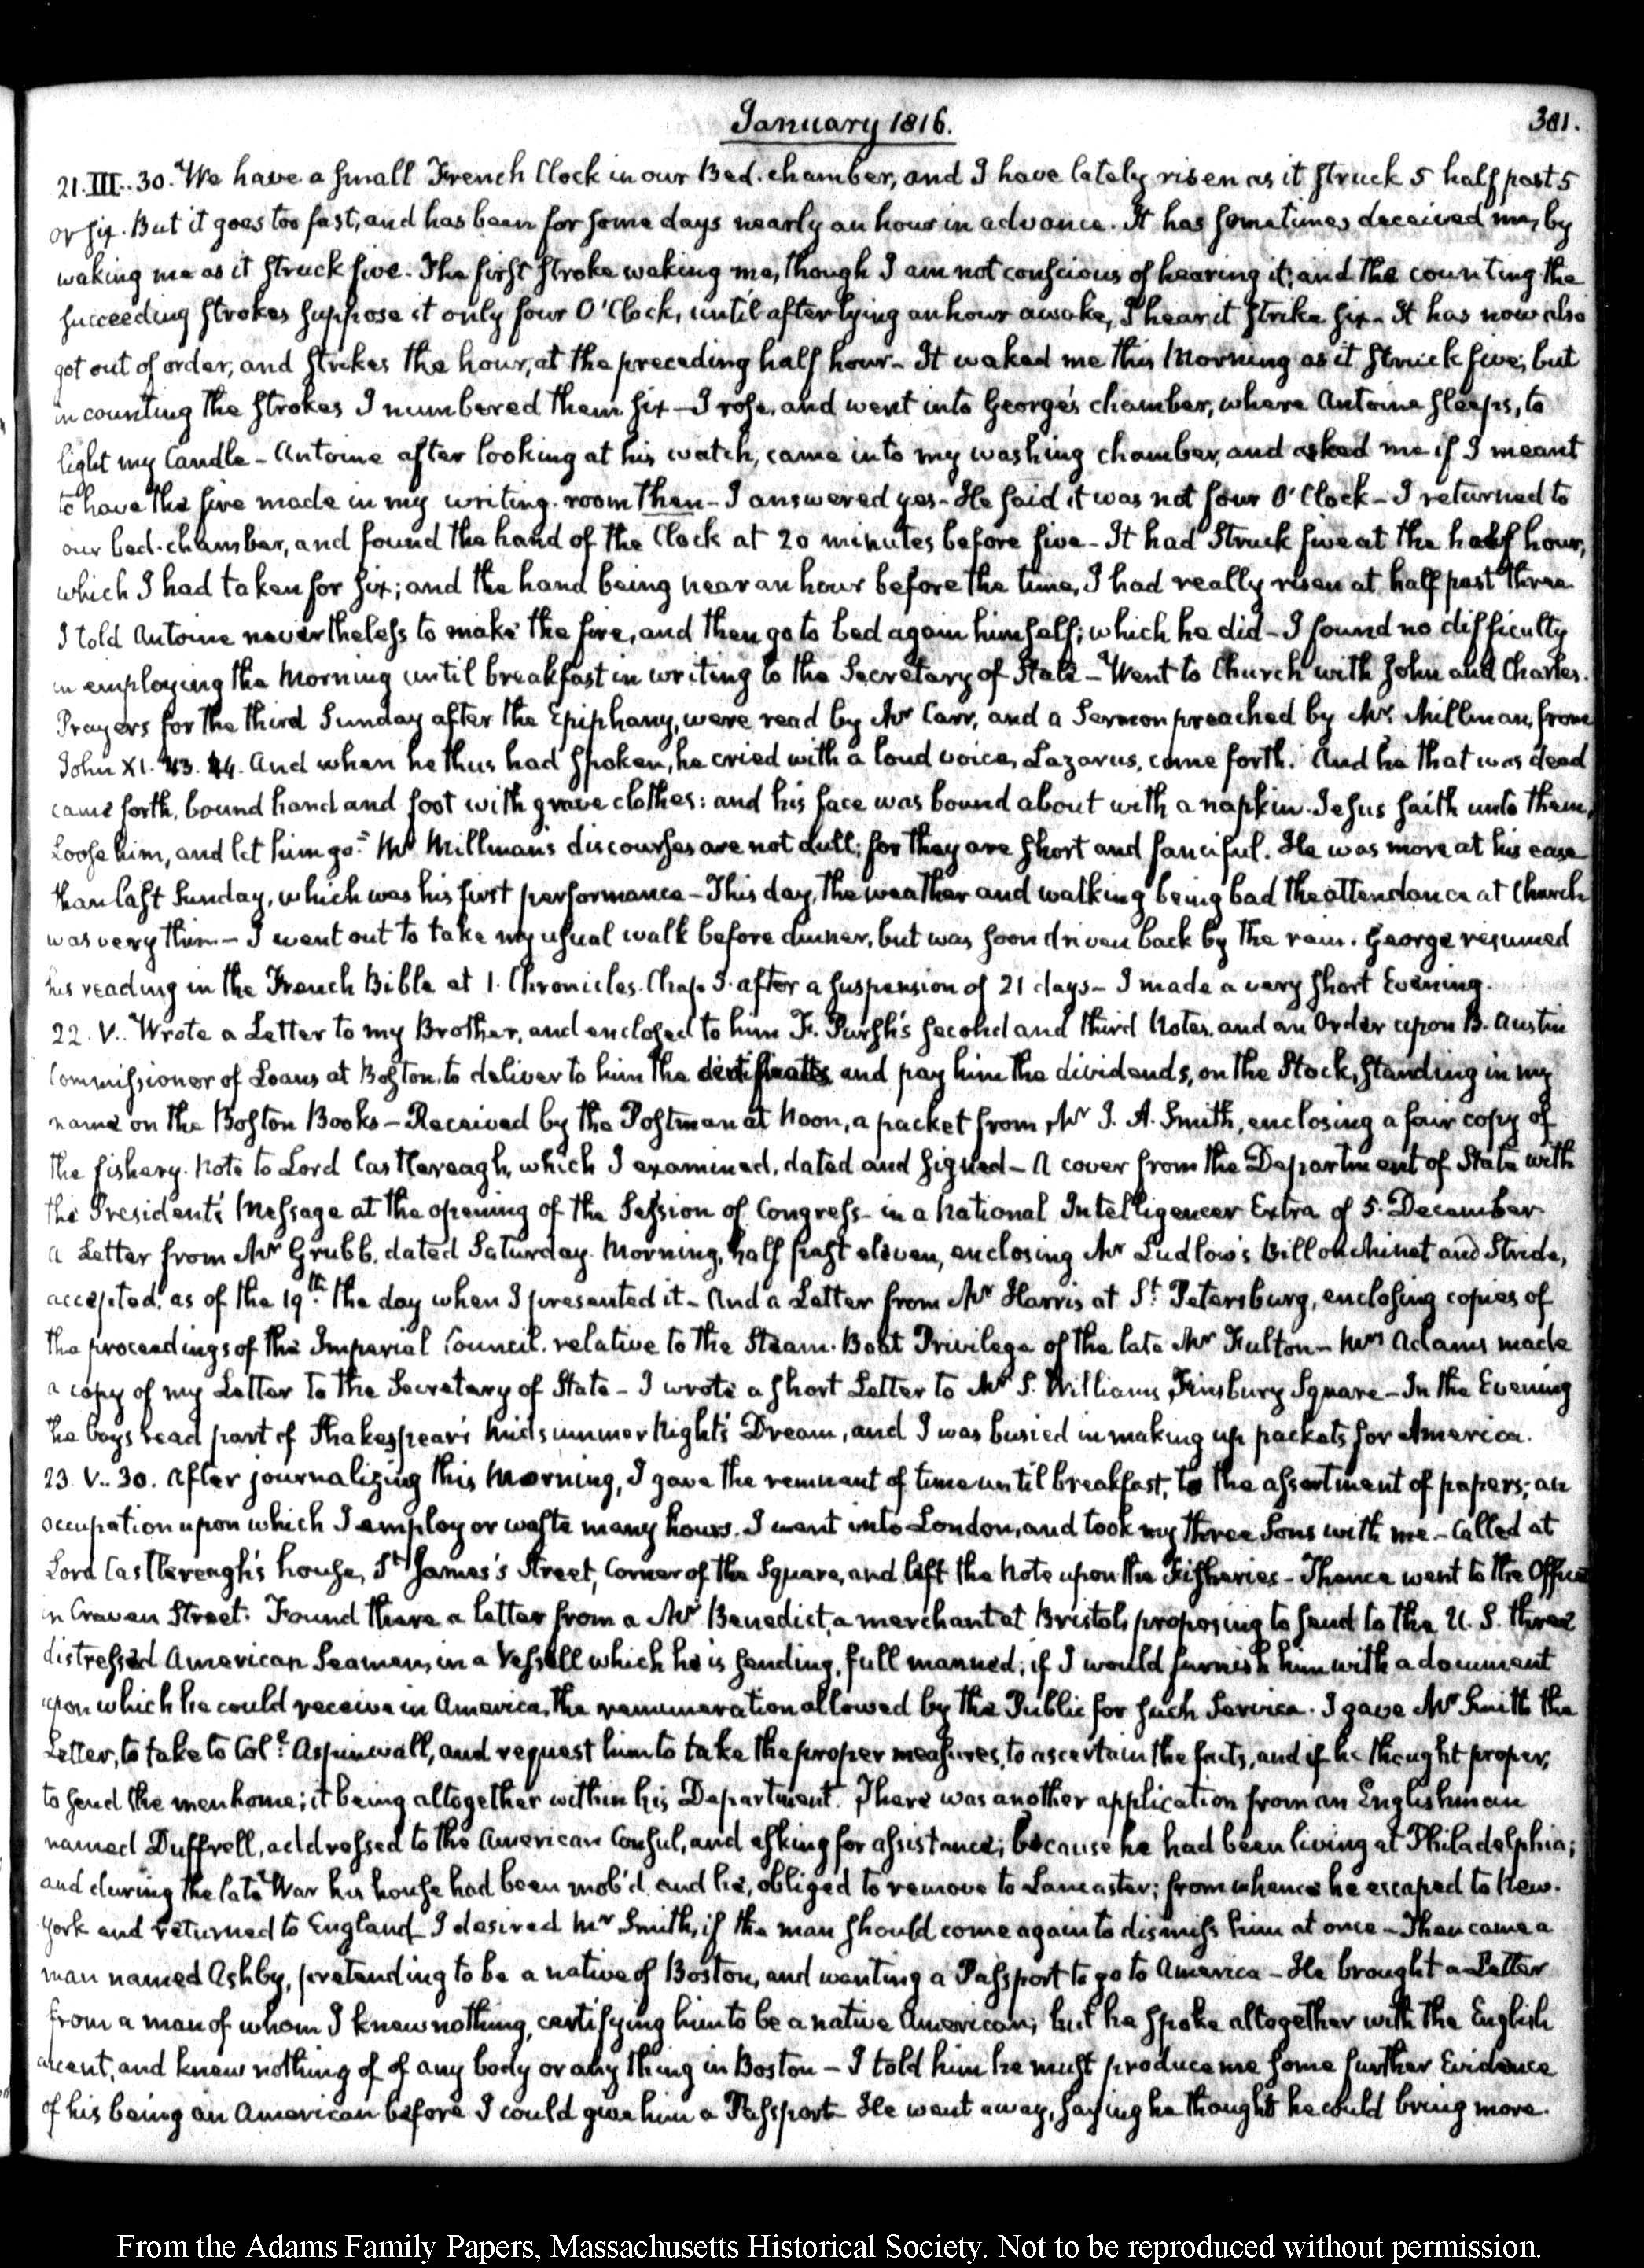 January 1816.
381.
21. III.. 30. We have a small French Clock in our Bed-chamber, and I have lately risen as it struck 5 half past 5
or six. But it goes too fast, and has been for some days nearly an hour in advance. It has sometimes deceived me, by
waking me as it struck five. The first stroke waking me, though I am not conscious of hearing it; and the counting the
succeeding strokes suppose it only four O'Clock, until after lying an hour awake, I hear it strike six - It has now also
got out of order, and strikes the hour, at the preceding half hour - It waked me this Morning as it struck five; but
in counting the strokes I numbered them six - I rose, and went into George's chamber, where Antoine sleeps, to
light my Candle - Antoine after looking at his watch, came into my washing chamber, and asked me if I meant
to have the fire made in my writing-room then - I answered yes - He said it was not four O'Clock - I returned to
our bed-chamber, and found the hand of the Clock at 20 minutes before five - It had struck five at the half hour,
which I had taken for six; and the hand being near an hour before the time, I had really risen at half past three
I told Antoine nevertheless to make the fire, and then go to bed again himself; which he did - I found no difficulty
in employing the Morning until breakfast in writing to the Secretary of State - Went to Church with John and Charles.
Prayers for the third Sunday after the Epiphany, were read by Mr Carr, and a Sermon preached by Mr. Millman, from
John XI. 43. 44. And when he thus had spoken, he cried with a loud voice, Lazarus, come forth. And he that was dead
came forth, bound hand and foot with grave clothes: and his face was bound about with a napkin. Jesus saith unto them,
Loose him, and let him go." Mr Millman's discourses are not dull; for they are short and fanciful. He was more at his ease
than last Sunday, which was his first performance - This day, the weather and walking being bad the attendance at Church
was very thin - I went out to take my usual walk before dinner, but was soon driven back by the rain. George resumed
his reading in the French Bible at 1. Chronicles. Chap. 5. after a suspension of 21 days - I made a very short Evening.
22. V.. Wrote a Letter to my Brother, and enclosed to him F. Pursh's second and third Notes, and an Order upon B. Austin
Commissioner of Loans at Boston, to deliver to him the certificates and pay him the dividends, on the Stock, standing in my
name on the Boston Books - Received by the Postman at Noon, a packet from Mr J. A. Smith, enclosing a fair copy of
the fishery-Note to Lord Castlereagh, which I examined, dated and signed - A cover from the Department of State with
the President's Message at the opening of the Session of Congress - in a National Intelligencer Extra of 5. December
a Letter from Mr Grubb, dated Saturday Morning, half past eleven, enclosing Mr Ludlow's Bill on Minet and Stride,
accepted, as of the 19th. the day when I presented it - And a Letter from Mr Harris at St. Petersburg, enclosing copies of
the proceedings of the Imperial Council, relative to the Steam-Boat Privilege of the late Mr Fulton - Mrs Adams made
a copy of my Letter to the Secretary of State - I wrote a short Letter to Mr S. Williams, Finsbury Square - In the Evening
the boys read part of Shakespear's Midsummer Night's Dream, and I was busied in making up packets for America.
23. V.. 30. After journalizing this Morning, I gave the remnant of time until breakfast, to the assortment of papers; an
occupation upon which I employ or waste many hours. I went into London, and took my three Sons with me - Called at
Lord Castlereagh's house, St James's Street, Corner of the Square, and left the Note upon the Fisheries - Thence went to the Office
in Craven Street. Found there a letter from a Mr Benedict, a merchant at Bristol, proposing to send to the U. S. three
distressed American Seamen, in a Vessell which he is sending, full manned; if I would furnish him with a document
upon which he could receive in America, the renumeration allowed by the Public for such Service. I gave Mr Smith the
Letter, to take to Coll. Aspinwall, and request him to take the proper measures, to ascertain the facts, and if he thought proper,
to send the men home; it being altogether within his Department. There was another application from an Englishman
named Duffrell, addressed to the American Consul, and asking for assistance; because he had been living at Philadelphia;
and during the late War his house had been mob'd, and he, obliged to remove to Lancaster; from whence he escaped to New-
York and returned to England - I desired Mr Smith, if the man should come again to dismiss him at once - Then came a
man named Ashby, pretending to be a native of Boston, and wanting a Passport to go to America - He brought a Letter
from a man of whom I knew nothing, certifying him to be a native American; but he spoke altogether with the English
accent, and knew nothing of of any body or any thing in Boston - I told him he must produce me some further Evidence
of his being an American before I could give him a Passport - He went away, saying he thought he could bring more.
From the Adams Family Papers, Massachusetts Historical Society. Not to be reproduced without permission.